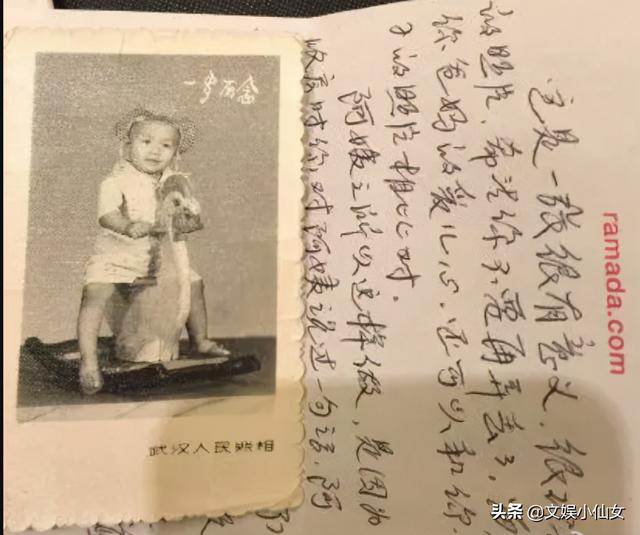 一岁留念
武汉人民照相
ramada.com
这是一张很有意义，很
的照片，希望你不要再弄丢了，
你爸妈的爱儿心，还可以和你
的照片相比对。
阿姨之所以这样做，是因为
收房时你对阿姨说过一句话，阿
头条 @文娱小仙女